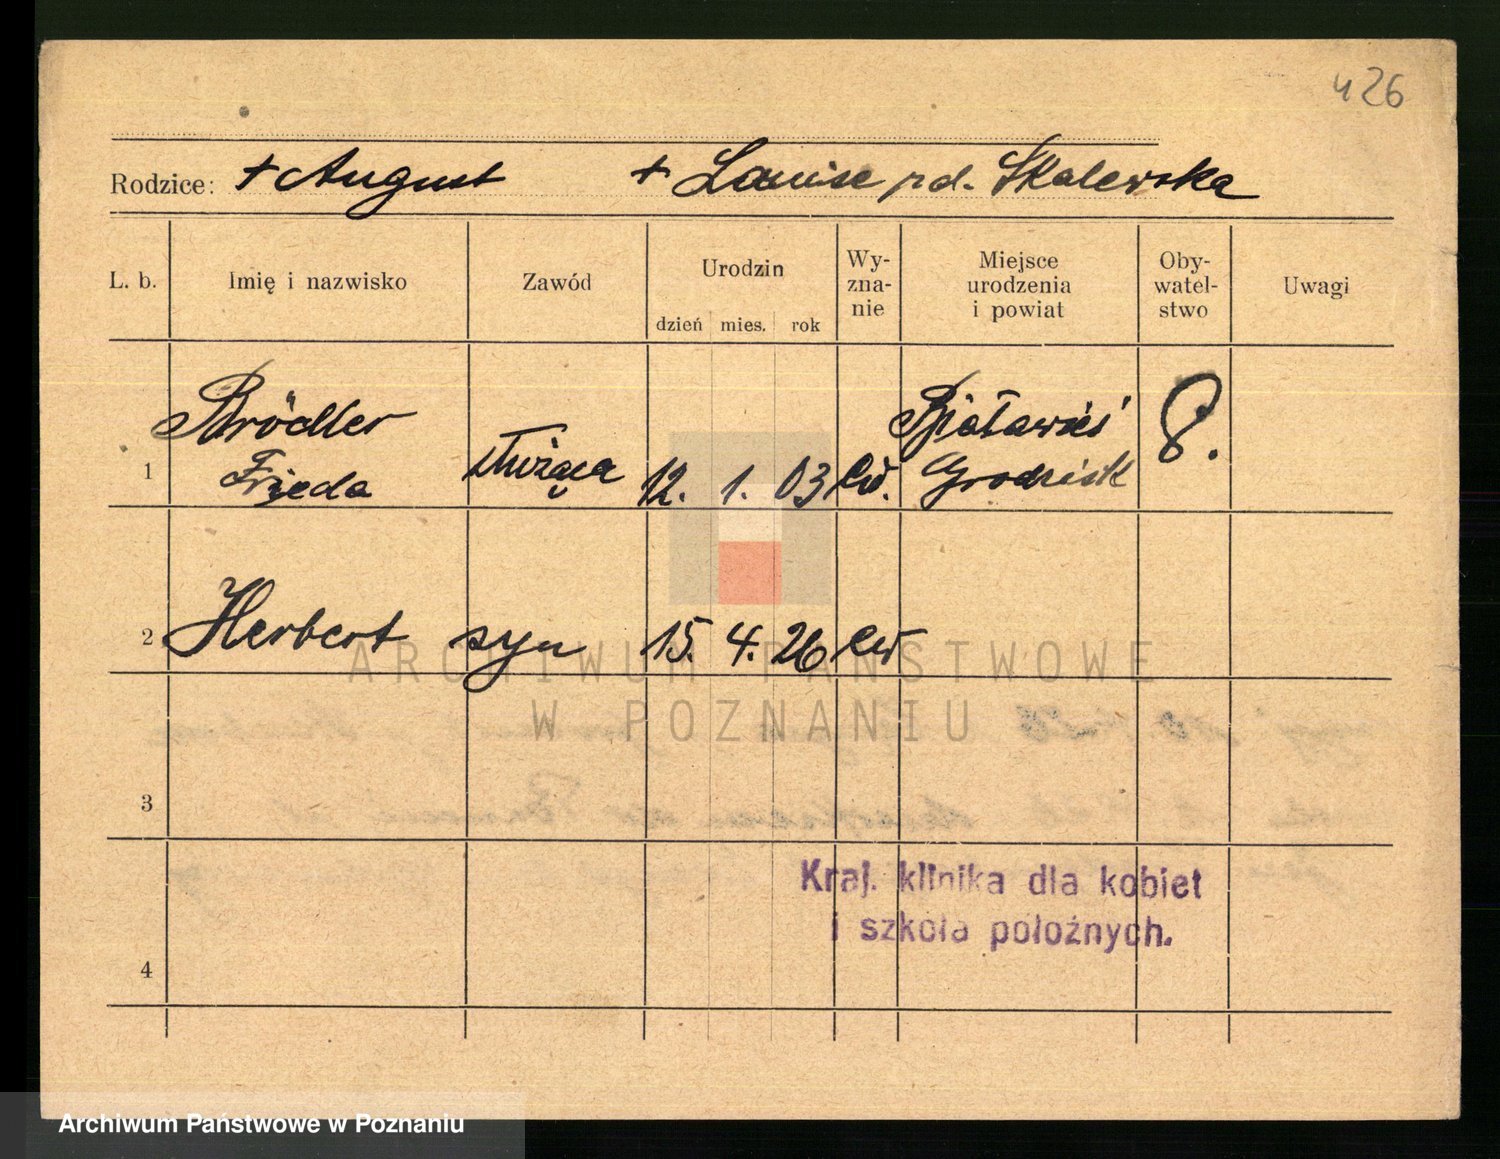 426
Rodzice: + August + Louise rd. Skalewska
L. b. Imię i nazwisko Zawód Urodzin dzień mies. rok Wy-zna-nie Miejsce urodzenia i powiat Oby-watel-stwo Uwagi
1 Brödler Frieda służąca 12. 1. 03 ew. Białawieś Grodzisk P.
2 Herbert syn 15. 4. 26 ew
3
4
Kraj. klinika dla kobiet
i szkoła położnych.
ARCHIWUM PAŃSTWOWE
W POZNANIU
Archiwum Państwowe w Poznaniu